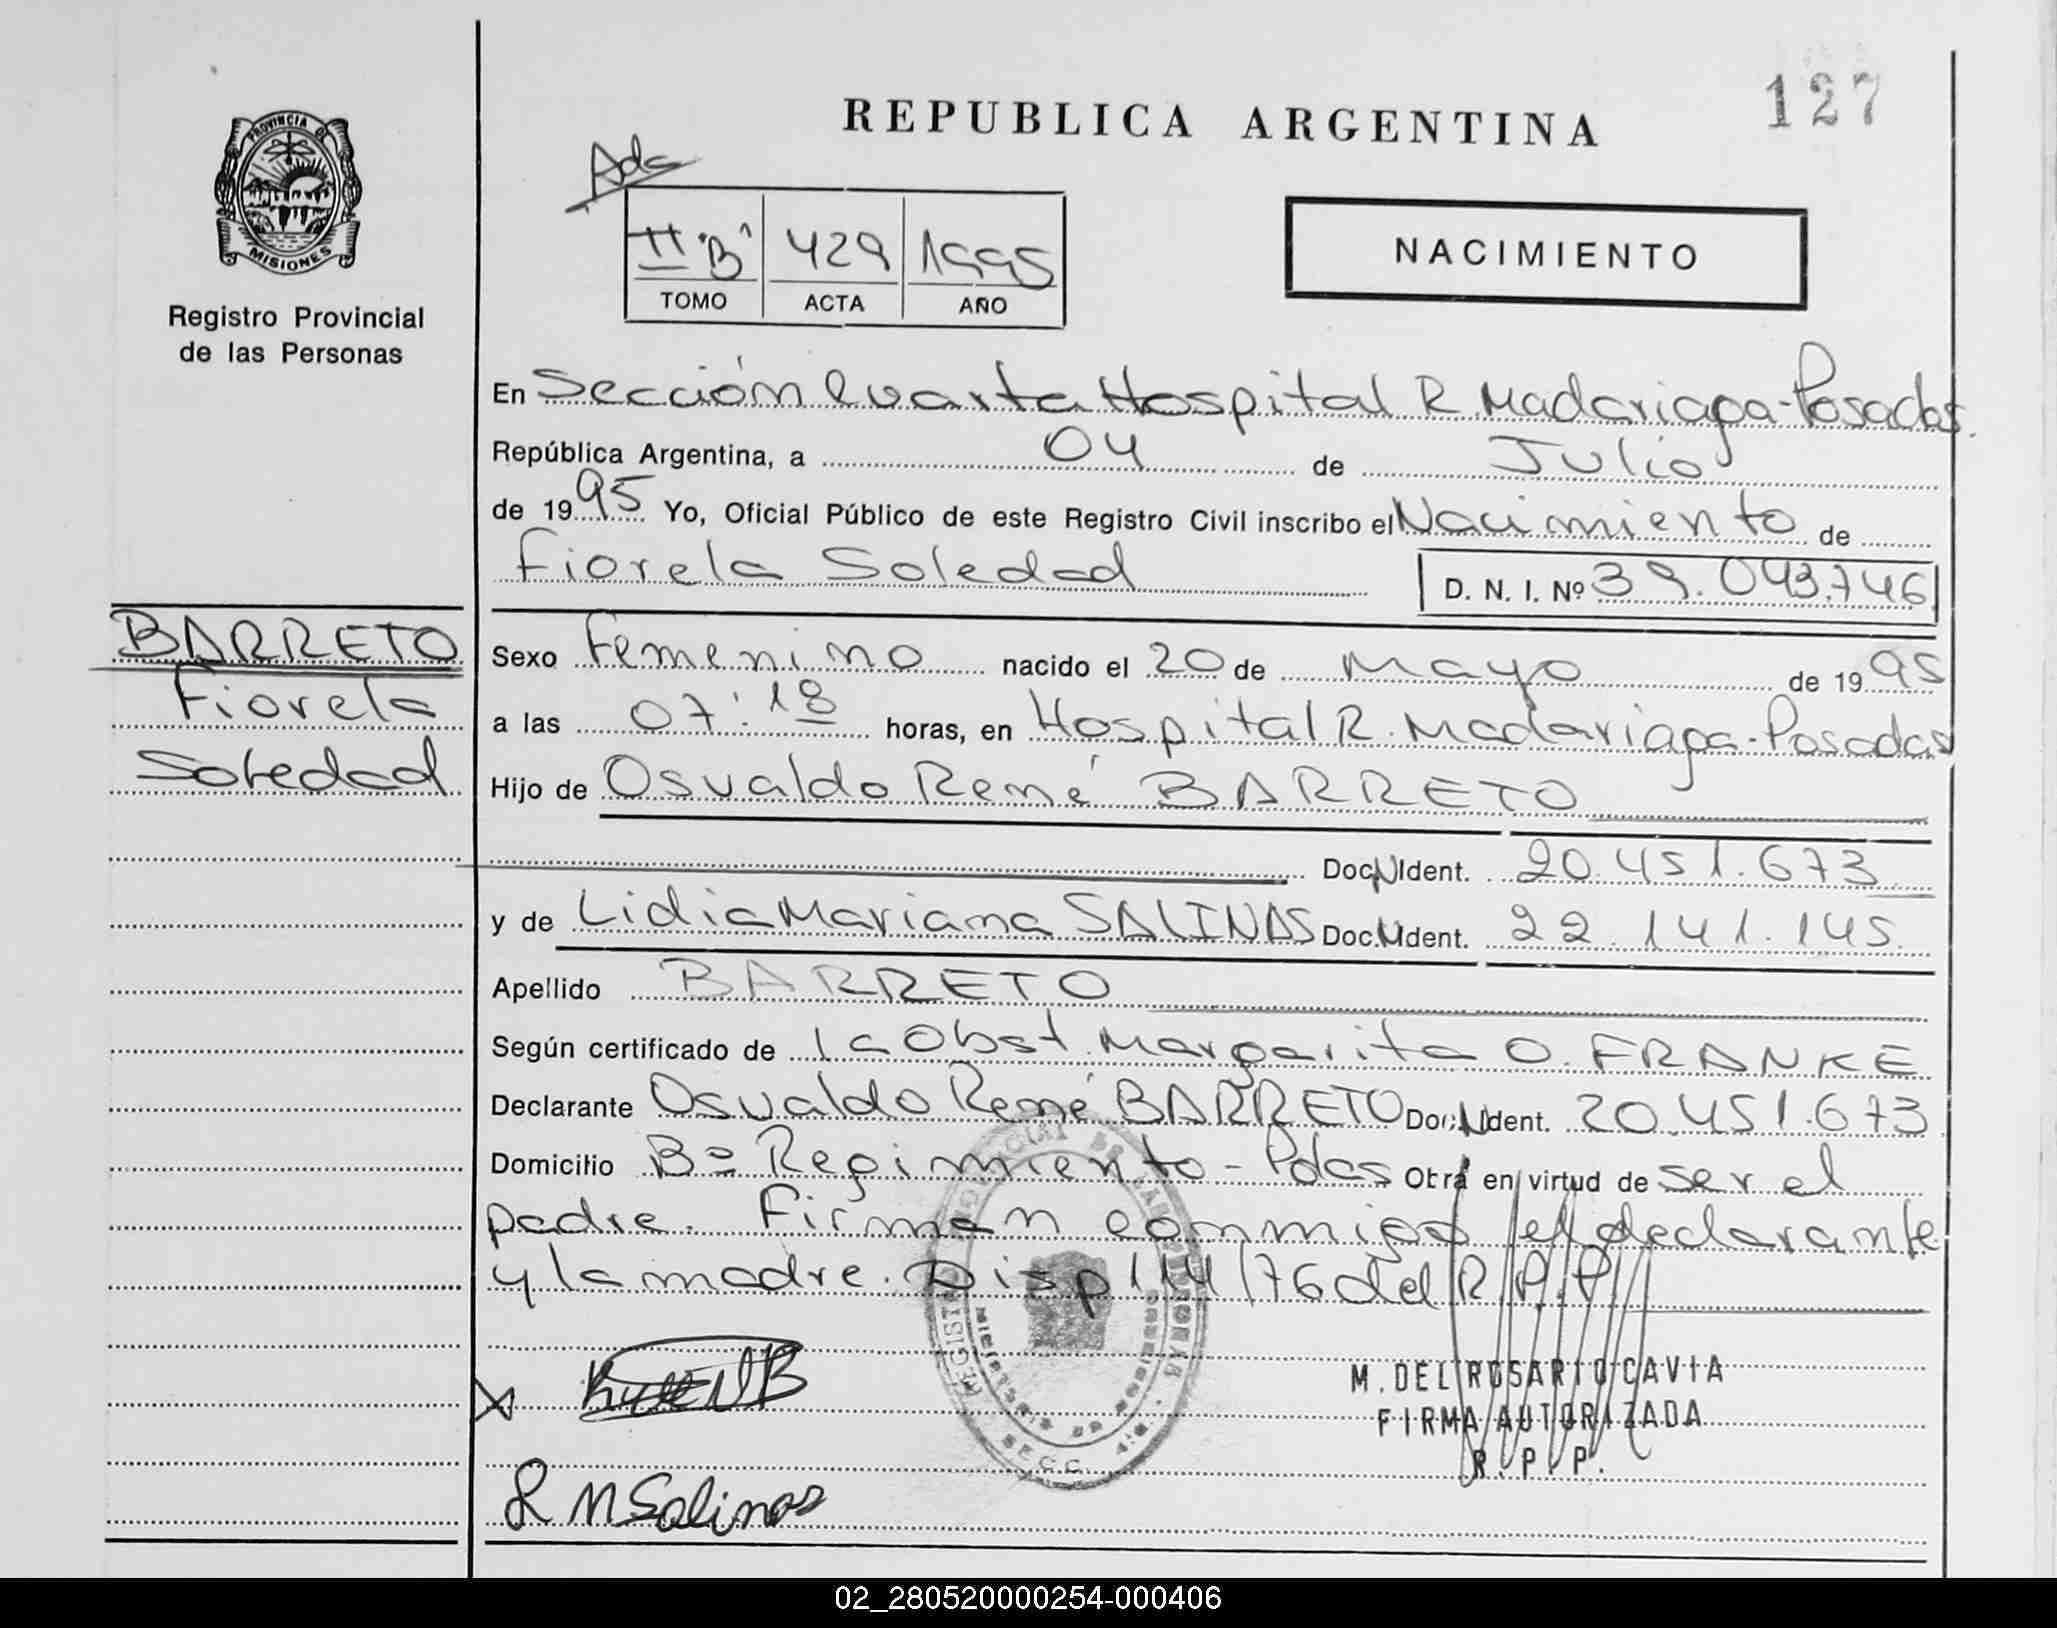 127
REPUBLICA ARGENTINA
Ads
PROVINCIA DE
MISIONES
Registro Provincial
de las Personas
II "B" 429 1995
TOMO ACTA AÑO
NACIMIENTO
En Sección Cuarta Hospital R. Madariaga-Posadas.
República Argentina, a 04 de Julio
de 1995 Yo, Oficial Público de este Registro Civil inscribo el Nacimiento de
Fiorela Soledad D. N. I. Nº 39.043.746
BARRETO
Fiorela
Soledad
Sexo Femenino nacido el 20 de Mayo de 1995
a las 07:18 horas, en Hospital R. Madariaga-Posadas
Hijo de Osvaldo René BARRETO
Doc.N.Ident. 20.451.673
y de Lidia Mariana SALINAS Doc.N.Ident. 22.141.145
Apellido BARRETO
Según certificado de la Obst. Margarita O. FRANKE
Declarante Osvaldo René BARRETO Doc.N.Ident. 20.451.673
Domicilio Bº Regimiento - Pdas Obra en virtud de ser el
padre. Firman conmigo el declarante
y la madre. Disp 114/76 del R.P.P.
M. DEL ROSARIO CAVIA
FIRMA AUTORIZADA
R. P. P.
L M Salinas
02_280520000254-000406